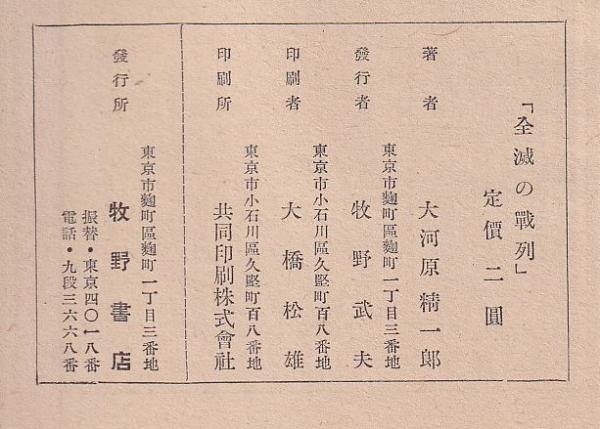 「全滅の戰列」
定價二圓
著者 大河原精一郎
東京市麴町區麴町一丁目三番地
發行者 牧野武夫
東京市小石川區久堅町百八番地
印刷者 大橋松雄
東京市小石川區久堅町百八番地
印刷所 共同印刷株式會社
東京市麴町區麴町一丁目三番地
發行所 牧野書店
振替・東京四〇一八番
電話・九段三六六八番